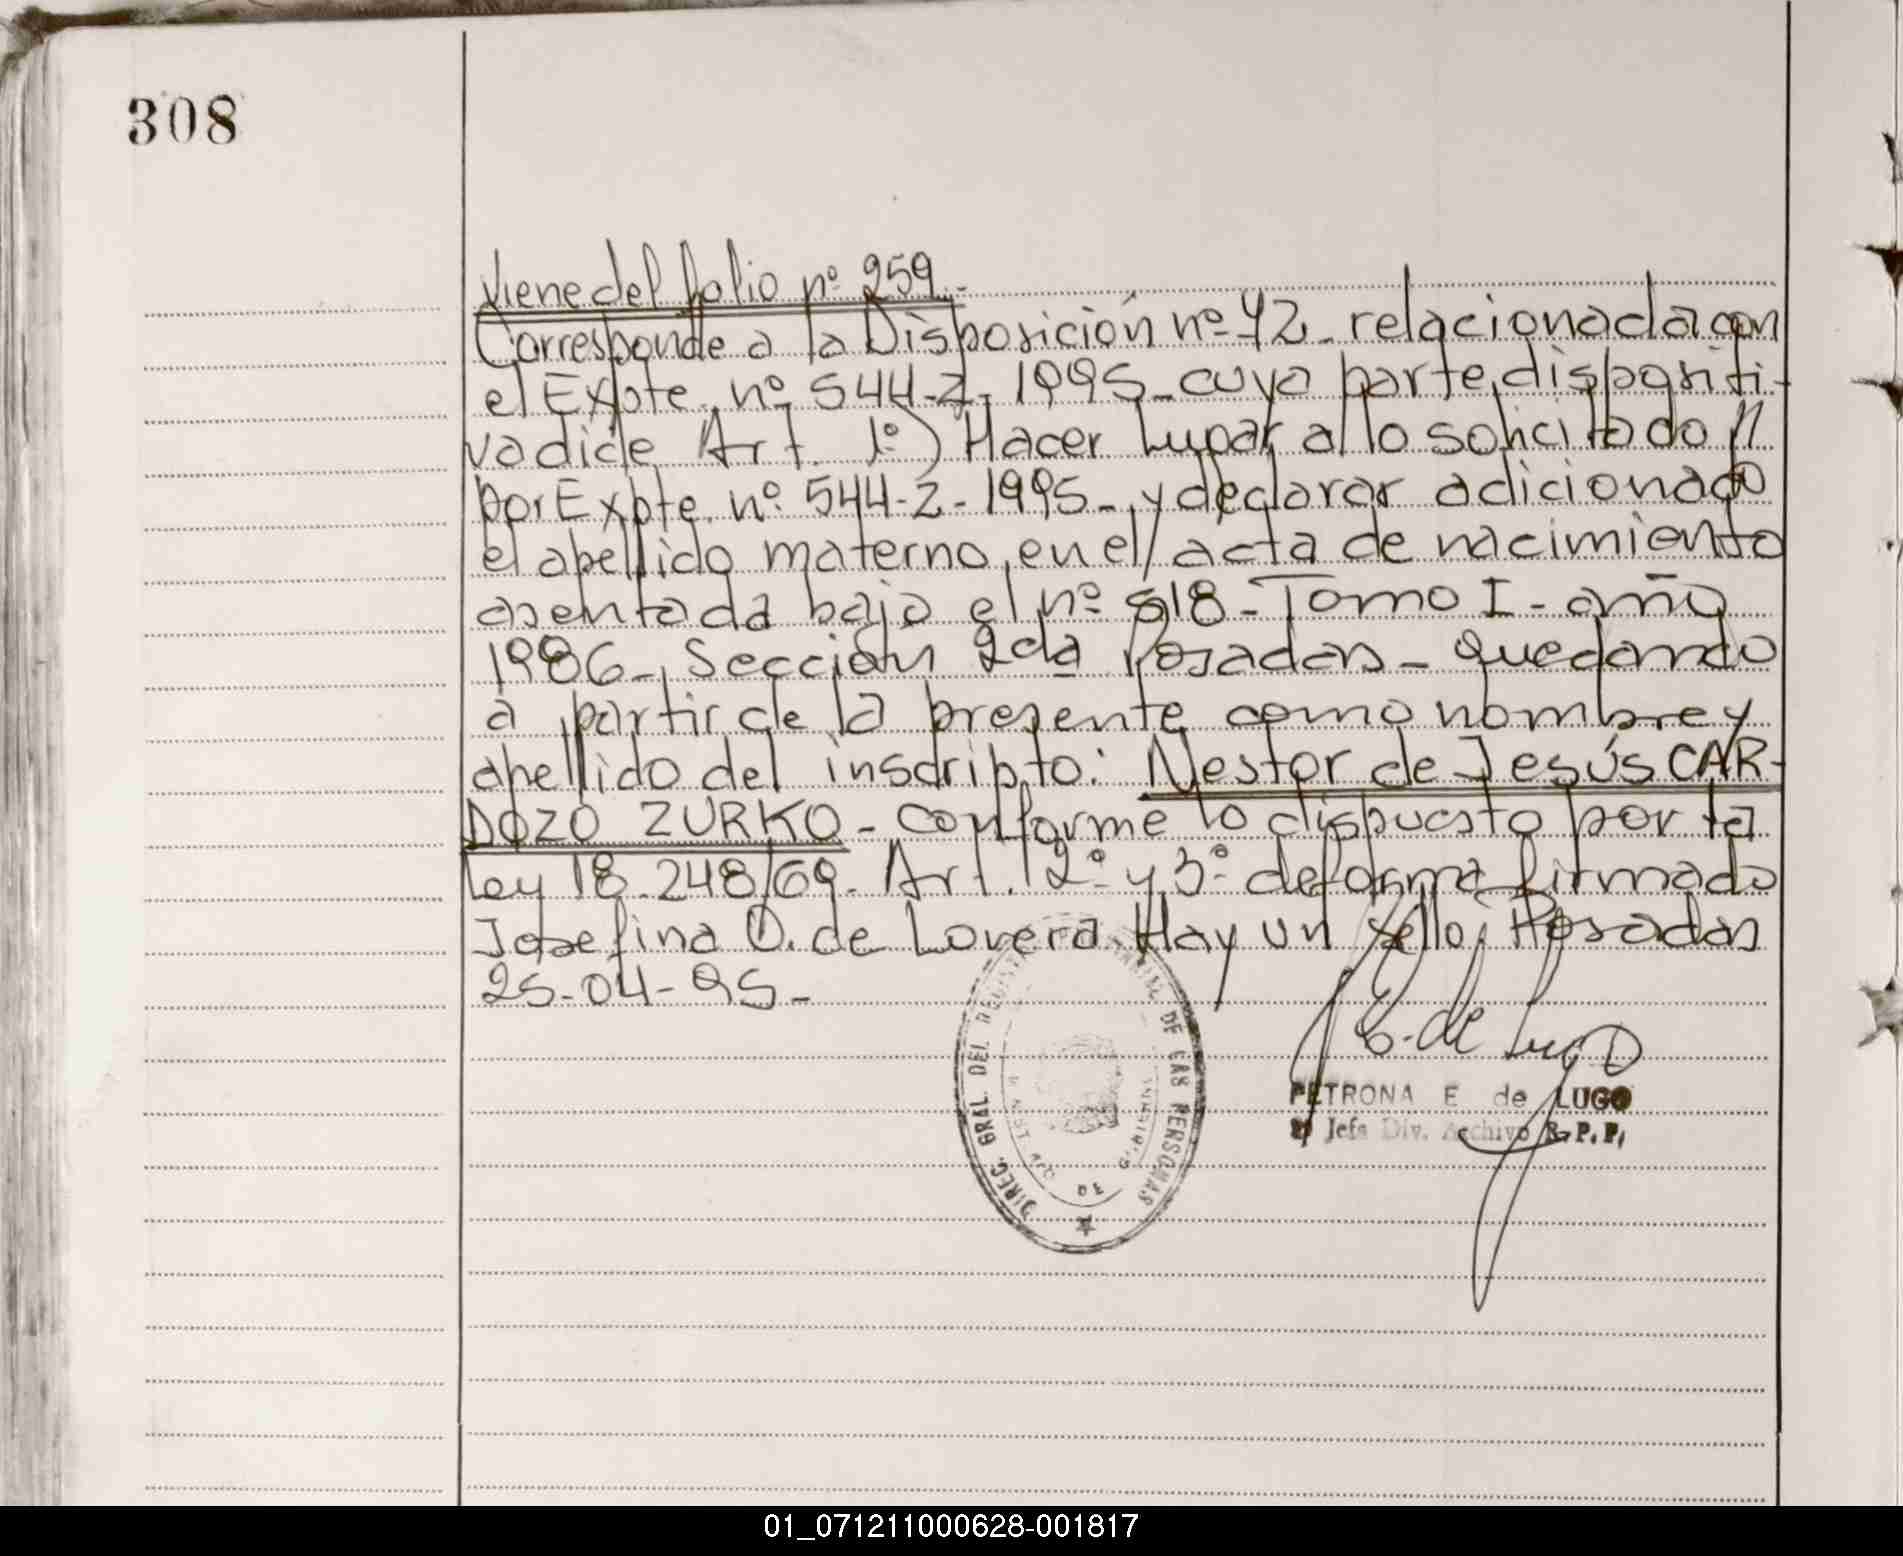 308
Viene del folio nº 259.-
Corresponde a la Disposición nº 42 - relacionada con
el Expte. nº 544-Z-1995 - cuya parte dispositi-
va dice Art. 1º) Hacer Lugar a lo solicitado //
por Expte. nº 544-Z-1995 -, y declarar adicionado
el apellido materno, en el acta de nacimiento
asentada bajo el nº 518 - Tomo I - año
1986 -, Sección 2da Posadas - quedando
a partir de la presente como nombre y
apellido del inscripto: Nestor de Jesús CAR-
DOZO ZURKO - conforme lo dispuesto por la
Ley 18.248/69. Art. 2º y 3º de forma firmado
Josefina O. de Lovera. Hay un sello; Posadas
25-04-95.-
DIREC. GRAL. DEL REGISTRO PROVINCIAL DE LAS PERSONAS
P. E. de Lugo
PETRONA E de LUGO
Jefa Div. Archivo R. P. P.
01_071211000628-001817